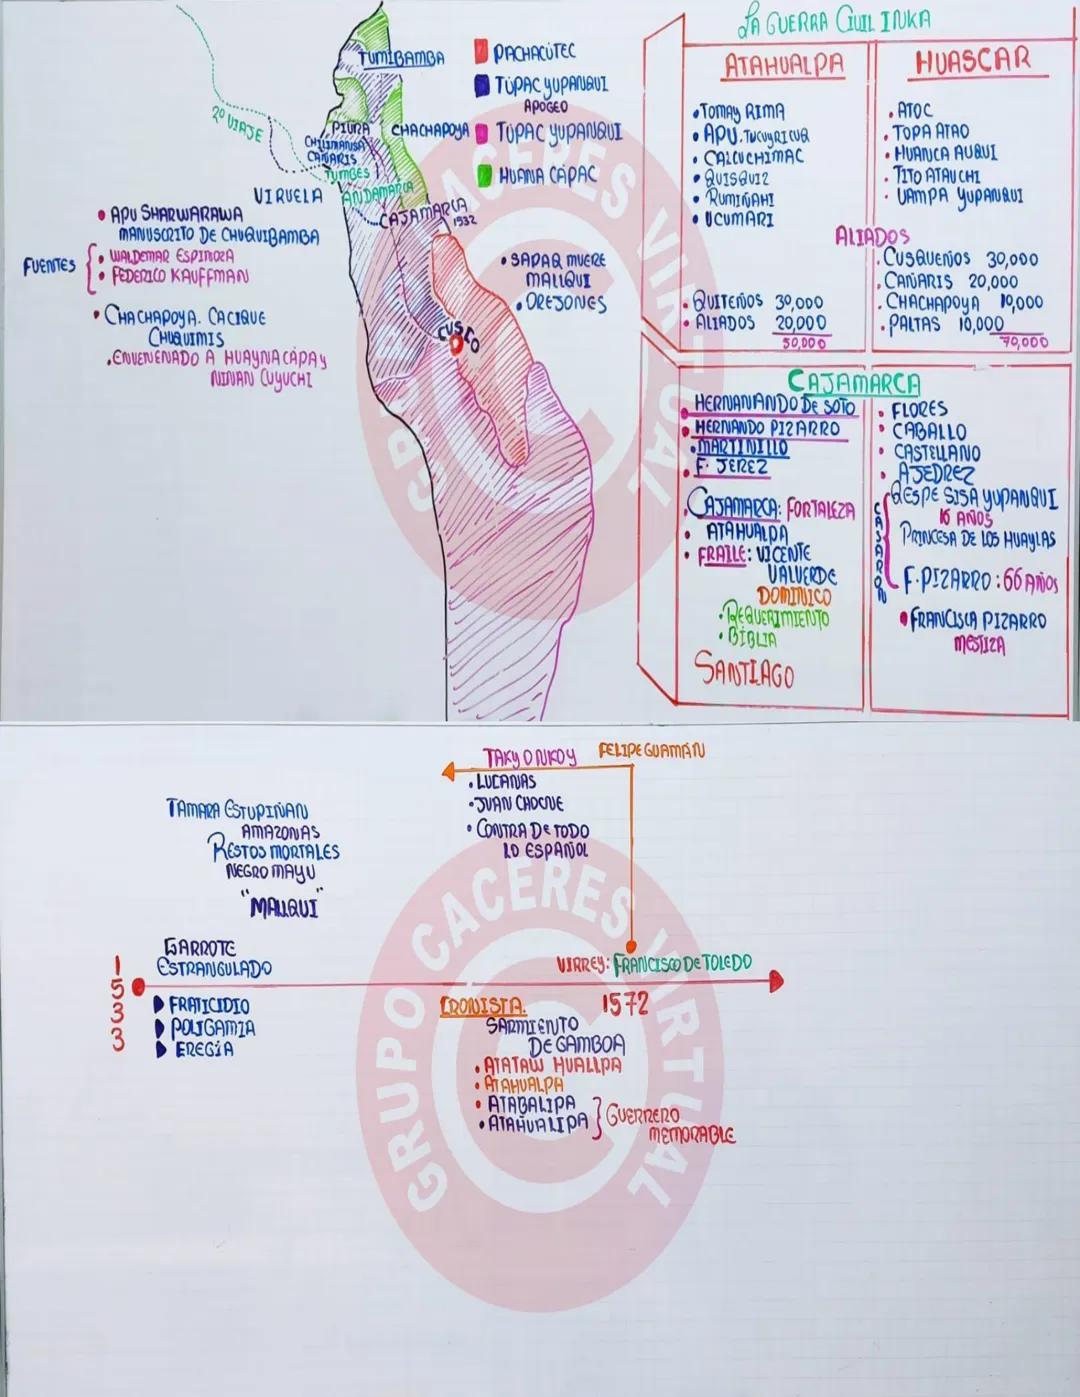 TUMIBAMBA
PACHACÚTEC
TÚPAC YUPANQUI
APOGEO
TÚPAC YUPANQUI
HUANA CÁPAC
2º VIAJE
PIURA
CHACHAPOYA
CAÑARIS
TUMBES
ANDAMARCA
CAJAMARCA
1532
CUSCO
VIRUELA
• APU SHARWARAWA
MANUSCRITO DE CHUQUIBAMBA
FUENTES
• WALDEMAR ESPINOZA
• FEDERICO KAUFFMAN
• CHACHAPOYA. CACIQUE
CHUQUIMIS
. ENVENENADO A HUAYNA CÁPAC Y
NINAN CUYUCHI
• SAPAQ MUERE
MALLQUI
• OREJONES
LA GUERRA CIUIL INKA
ATAHUALPA
• TOMAY RIMA
• APU. TUCUYRICUQ
• CALCUCHIMAC
• QUISQUIZ
• RUMIÑAHI
• UCUMARI
• QUITEÑOS 30,000
• ALIADOS 20,000
50,000
HUASCAR
• ATOC
• TOPA ATAO
• HUANCA AUQUI
• TITO ATAUCHI
• UAMPA YUPANQUI
ALIADOS
• CUSQUEÑOS 30,000
• CAÑARIS 20,000
• CHACHAPOYA 10,000
• PALTAS 10,000
70,000
CAJAMARCA
• HERNANANDO DE SOTO
• HERNANDO PIZARRO
• MARTINILLO
• F. JEREZ
• CAJAMARCA: FORTALEZA
• ATAHUALPA
• FRAILE: VICENTE
VALVERDE
DOMINICO
• REQUERIMIENTO
• BIBLIA
SANTIAGO
• FLORES
• CABALLO
• CASTELLANO
• AJEDREZ
CASARON
QESPE SISA YUPANQUI
16 AÑOS
PRINCESA DE LOS HUAYLAS
F. PIZARRO: 66 AÑOS
• FRANCISCA PIZARRO
MESTIZA
TAKY ONKOY
FELIPE GUAMÁN
• LUCANAS
• JUAN CHOCNE
• CONTRA DE TODO
LO ESPAÑOL
TAMARA ESTUPIÑAN
AMAZONAS
RESTOS MORTALES
NEGRO MAYU
"MALLQUI"
GARROTE
ESTRANGULADO
1533
FRATICIDIO
POLIGAMIA
EREGÍA
VIRREY: FRANCISCO DE TOLEDO
1572
CRONISTA.
SARMIENTO
DE GAMBOA
• ATATAW HUALLPA
• ATAHUALPA
• ATABALIPA
• ATAHUALIPA
GUERRERO
MEMORABLE
GRUPO CACERES VIRTUAL
GRUPO CACERES VIRTUAL